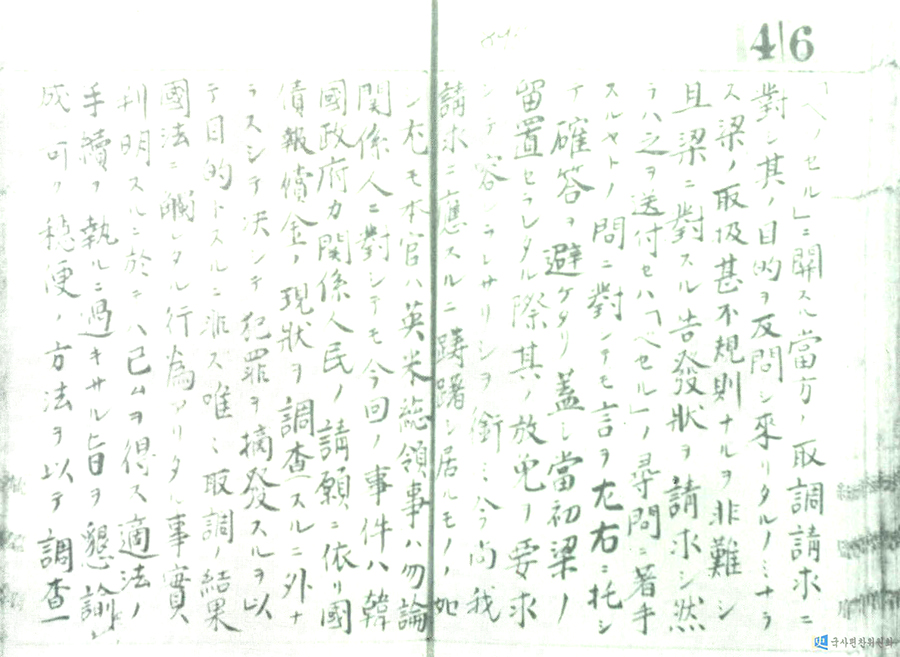 46
「ベッセル」ニ關スル當方ノ取調請求ニ
對シ其ノ目的ヲ反問シ來リタルノミナラ
ス梁ノ取扱甚不規則ナルヲ非難シ
且梁ニ對スル告發狀ヲ請求シ然
ラハ之ヲ送付セハ「ベセル」ノ尋問ニ着手
スルヤトノ問ニ對シテモ言ヲ左右ニ托シ
テ確答ヲ避ケタリ蓋シ當初梁ノ
留置セラレタル際其ノ放免ノ要求
シテ容レラレサリシヲ銜ミ今尚我
請求ニ應スルニ躊躇シ居ルモノノ如
シ尤モ本官ハ英米總領事ハ勿論
關係人ニ對シテモ今回ノ事件ハ韓
國政府カ關係人民ノ請願ニ依リ國
債報償金ノ現狀ヲ調査スルニ外ナ
ラスシテ決シテ犯罪ヲ摘發スルヲ以
テ目的トスルニ非ス唯ミ取調ノ結果
國法ニ觸レタル行爲アリタル事實
判明スルニ於テハ已ムヲ得ス適法ノ
手續ヲ執ルニ過キサル旨ヲ懇諭シ
成可ク穏便ノ方法ヲ以テ調査
국사편찬위원회